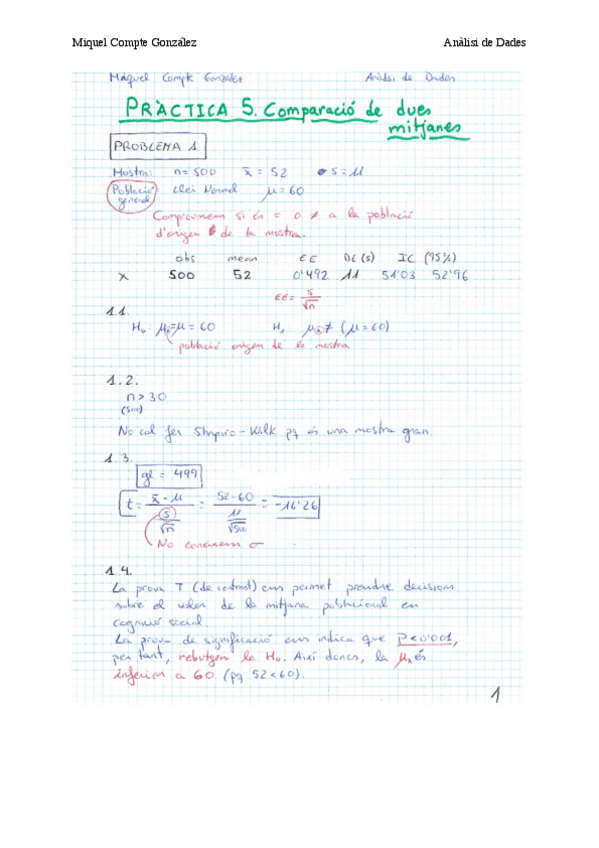 Miquel Compte González Anàlisi de Dades
Miquel Compte González Anàlisi de Dades
PRÀCTICA 5. Comparació de dues
mitjanes
PROBLEMA 1
Mostra: n = 500 x̄ = 52 s = 11
Població Llei Normal μ = 60
general
Comprovinem si és = o ≠ a la població
d'origen de la mostra.
obs mean EE DE (s) IC (95%)
x 500 52 0'492 11 51'03 52'96
EE = s/√n
1.1.
H₀: μₓ = μ = 60 H₁ μₓ ≠ (μ = 60)
població origen de la mostra
1.2.
n > 30
(500)
No cal fer Shapiro-Wilk pq és una mostra gran.
1.3.
gl = 499
t = (x̄ - μ)/(s/√n) = (52-60)/(11/√500) = -16'26
No coneixem σ
1.4.
La prova T (de contrast) ens permet prendre decisions
sobre el valor de la mitjana poblacional en
cognició social.
La prova de significació ens indica que P<0'001,
per tant, rebutgem la H₀. Així doncs, la μₓ és
inferior a 60 (pq 52<60).
1